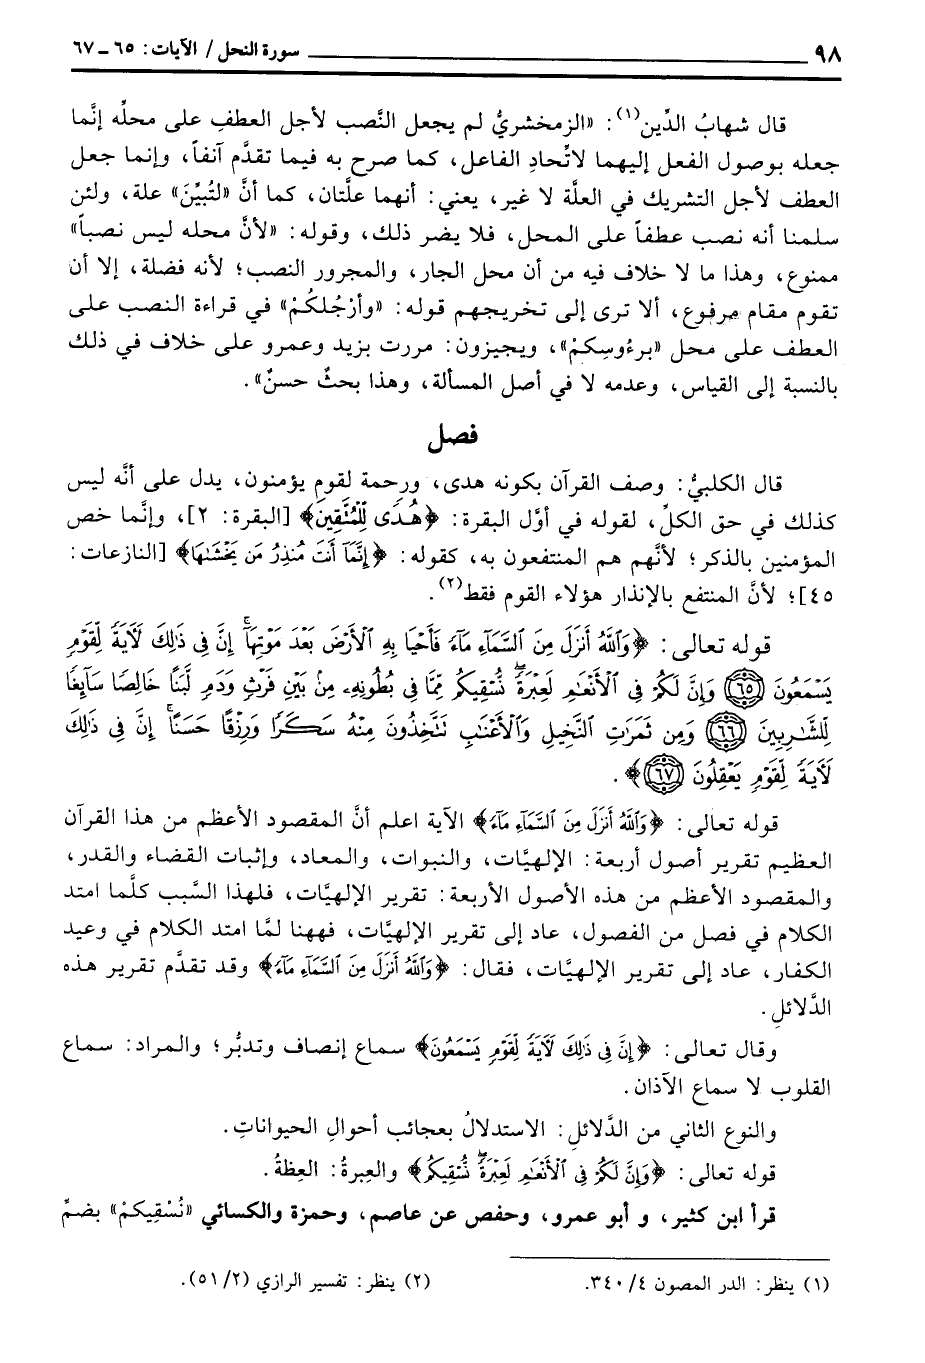 ٩٨ سورة النحل / الآيات: ٦٥ ـ ٦٧
قال شهابُ الدِّين(١): «الزمخشريُّ لم يجعل النَّصب لأجل العطفِ على محلِّه إنَّما
جعله بوصول الفعل إليهما لاتِّحادِ الفاعل، كما صرح به فيما تقدَّم آنفاً، وإنما جعل
العطف لأجل التشريك في العلَّة لا غير، يعني: أنهما علَّتان، كما أنَّ «لتُبيِّنَ» علة، ولئن
سلمنا أنه نصب عطفاً على المحل، فلا يضر ذلك، وقوله: «لأنَّ محله ليس نصباً»
ممنوع، وهذا ما لا خلاف فيه من أن محل الجار، والمجرور النصب؛ لأنه فضلة، إلا أن
تقوم مقام مرفوع، ألا ترى إلى تخريجهم قوله: «وأرْجُلكُمْ» في قراءة النصب على
العطف على محل «برءُوسِكمْ»، ويجيزون: مررت بزيد وعمرو على خلاف في ذلك
بالنسبة إلى القياس، وعدمه لا في أصل المسألة، وهذا بحثٌ حسنٌ».
فصل
قال الكلبيُّ: وصف القرآن بكونه هدى، ورحمة لقوم يؤمنون، يدل على أنَّه ليس
كذلك في حق الكلِّ، لقوله في أوَّل البقرة: ﴿هُدًى لِّلْمُتَّقِينَ﴾ [البقرة: ٢]، وإنَّما خص
المؤمنين بالذكر؛ لأنَّهم هم المنتفعون به، كقوله: ﴿إِنَّمَآ أَنتَ مُنذِرُ مَن يَخْشَىٰهَا﴾ [النازعات:
٤٥]؛ لأنَّ المنتفع بالإنذار هؤلاء القوم فقط(٢).
قوله تعالى: ﴿وَٱللَّهُ أَنزَلَ مِنَ ٱلسَّمَآءِ مَآءً فَأَحْيَا بِهِ ٱلْأَرْضَ بَعْدَ مَوْتِهَآ ۚ إِنَّ فِى ذَٰلِكَ لَآيَةً لِّقَوْمٍ
يَسْمَعُونَ ۝٦٥ وَإِنَّ لَكُمْ فِى ٱلْأَنْعَٰمِ لَعِبْرَةً ۖ نُّسْقِيكُم مِّمَّا فِى بُطُونِهِۦ مِنۢ بَيْنِ فَرْثٍ وَدَمٍ لَّبَنًا خَالِصًا سَآئِغًا
لِّلشَّٰرِبِينَ ۝٦٦ وَمِن ثَمَرَٰتِ ٱلنَّخِيلِ وَٱلْأَعْنَٰبِ نَتَّخِذُونَ مِنْهُ سَكَرًا وَرِزْقًا حَسَنًا ۗ إِنَّ فِى ذَٰلِكَ
لَآيَةً لِّقَوْمٍ يَعْقِلُونَ ۝٦٧﴾.
قوله تعالى: ﴿وَٱللَّهُ أَنزَلَ مِنَ ٱلسَّمَآءِ مَآءً﴾ الآية اعلم أنَّ المقصود الأعظم من هذا القرآن
العظيم تقرير أصول أربعة: الإلهيَّات، والنبوات، والمعاد، وإثبات القضاء والقدر،
والمقصود الأعظم من هذه الأصول الأربعة: تقرير الإلهيَّات، فلهذا السَّبب كلَّما امتد
الكلام في فصل من الفصول، عاد إلى تقرير الإلهيَّات، فههنا لمَّا امتد الكلام في وعيد
الكفار، عاد إلى تقرير الإلهيَّات، فقال: ﴿وَٱللَّهُ أَنزَلَ مِنَ ٱلسَّمَآءِ مَآءً﴾ وقد تقدَّم تقرير هذه
الدَّلائلِ.
وقال تعالى: ﴿إِنَّ فِى ذَٰلِكَ لَآيَةً لِّقَوْمٍ يَسْمَعُونَ﴾ سماع إنصاف وتدبُّر؛ والمراد: سماع
القلوب لا سماع الآذان.
والنوع الثاني من الدَّلائلِ: الاستدلالُ بعجائب أحوالِ الحيواناتِ.
قوله تعالى: ﴿وَإِنَّ لَكُمْ فِى ٱلْأَنْعَٰمِ لَعِبْرَةً ۖ نُّسْقِيكُم﴾ والعِبرةُ: العِظةُ.
قرأ ابن كثير، و أبو عمرو، وحفص عن عاصم، وحمزة والكسائي «نُسْقِيكمْ» بضمِّ
(١) ينظر: الدر المصون ٤/ ٣٤٠. (٢) ينظر: تفسير الرازي (٢/ ٥١).